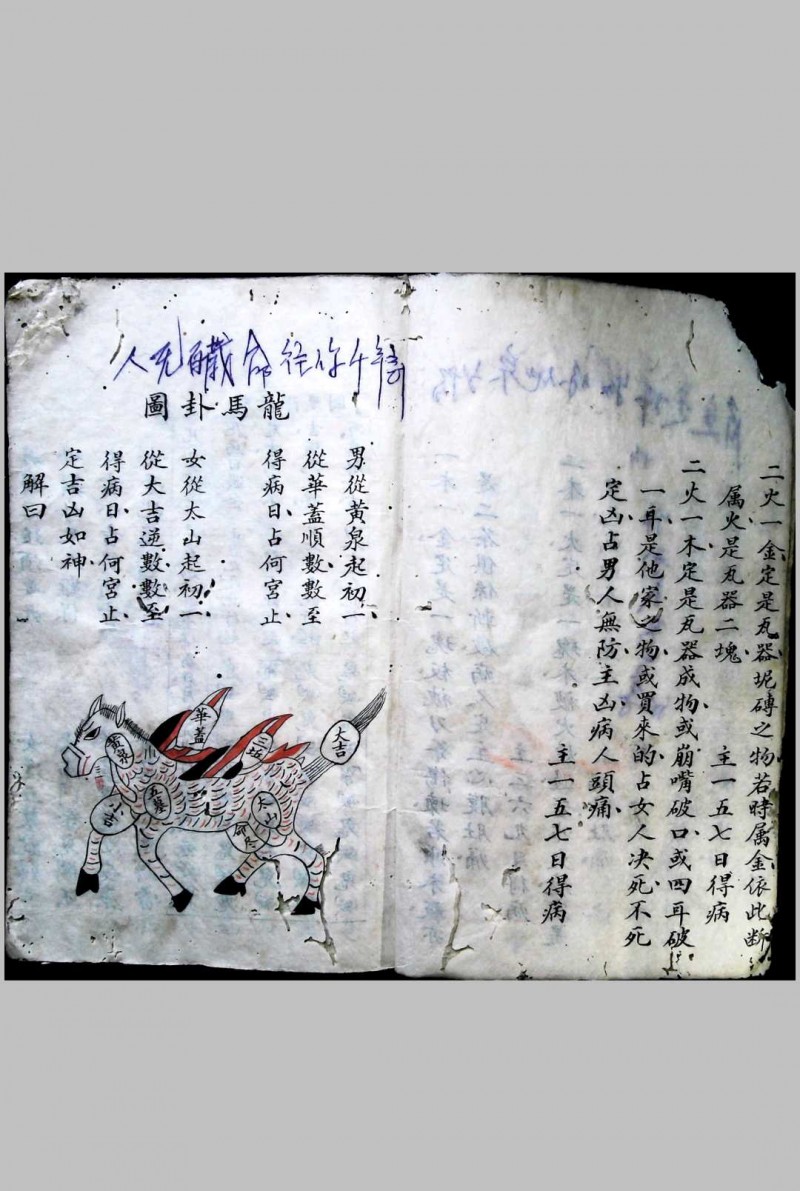 二火一金定是瓦器坭磚之物若時属金依此断
属火是瓦器二塊 主一五七日得病
二火一木定是瓦器成物或崩嘴破口或四耳破
一耳是他家之物或買來的占女人决死不死
定凶占男人無防主凶病人頭痛
主一五七日得病
龍馬卦圖
男從黃泉起初一
從華蓋順數數至
得病日占何宮止
女從太山起初一
從大吉逆數數至
得病日占何宮止
定吉凶如神
解曰
華蓋
黃泉
大吉
太山
小吉
五墓
命尽